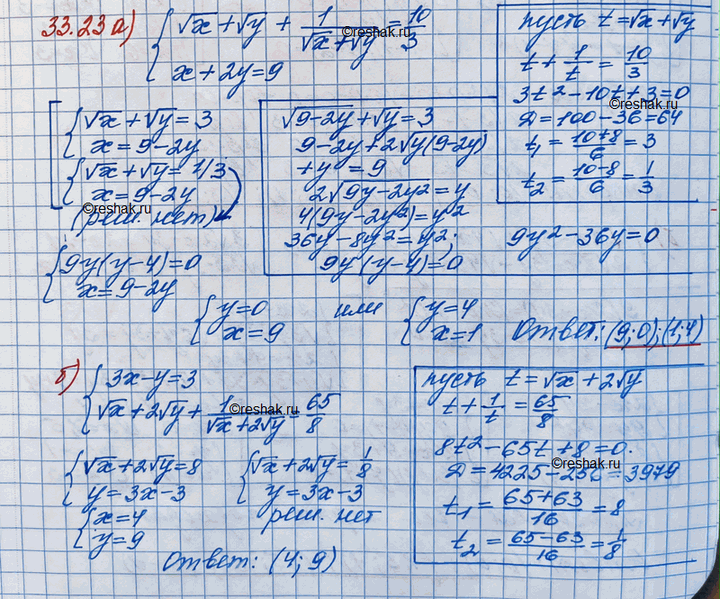 33.23 а) { √x + √y + 1/(√x + √y) = 10/3
x + 2y = 9
пусть t = √x + √y
t + 1/t = 10/3
3t² - 10t + 3 = 0
D = 100 - 36 = 64
t₁ = (10+8)/6 = 3
t₂ = (10-8)/6 = 1/3
[ { √x + √y = 3
x = 9 - 2y
{ √x + √y = 1/3
x = 9 - 2y
(реш. нет)
√(9-2y) + √y = 3
9 - 2y + 2√(y(9-2y))
+ y = 9
2√(9y-2y²) = y
4(9y - 2y²) = y²
36y - 8y² = y²; 9y² - 36y = 0
9y(y-4) = 0
{ 9y(y-4) = 0
x = 9 - 2y
{ y = 0 или { y = 4
x = 9 x = 1 Ответ: (9;0);(1;4)
б) { 3x - y = 3
√x + 2√y + 1/(√x + 2√y) = 65/8
пусть t = √x + 2√y
t + 1/t = 65/8
8t² - 65t + 8 = 0.
D = 4225 - 256 = 3979
t₁ = (65+63)/16 = 8
t₂ = (65-63)/16 = 1/8
{ √x + 2√y = 8 { √x + 2√y = 1/8
y = 3x - 3 y = 3x - 3
{ x = 4 реш. нет
y = 9
Ответ: (4; 9)
©reshak.ru
©reshak.ru
©reshak.ru
©reshak.ru